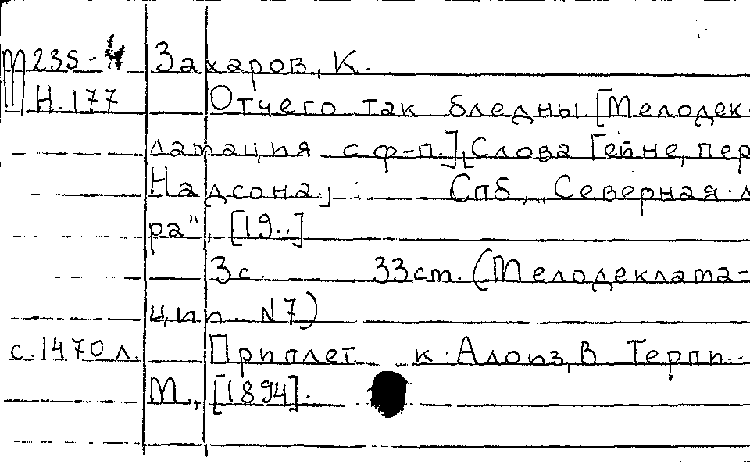 М 235-4 Захаров, К.
Н. 177 Отчего так бледны [Мелодек-
ламация с ф-п.], Слова Гейне, пер
Надсона. Спб., Северная л
ра", [19..]
3 с. 33 ст. (Мелодеклама-
ции N7)
с 1470 л. Приплет к Алоиз, В Терпи-
М., [1894].